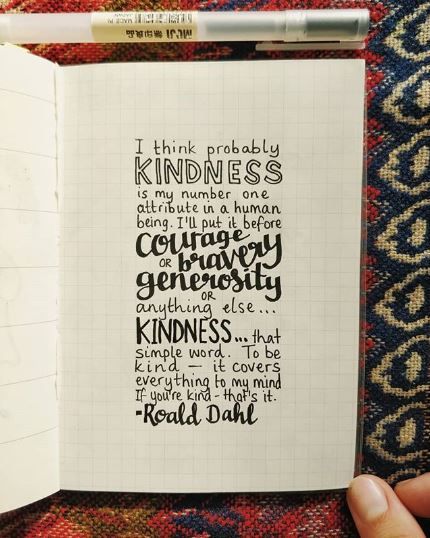 MUJI 無印良品
I think probably
KINDNESS
is my number one
attribute in a human
being. I'll put it before
courage
OR bravery
generosity
OR
anything else...
KINDNESS... that
simple word. To be
kind — it covers
everything to my mind
If you're kind - that's it.
-Roald Dahl